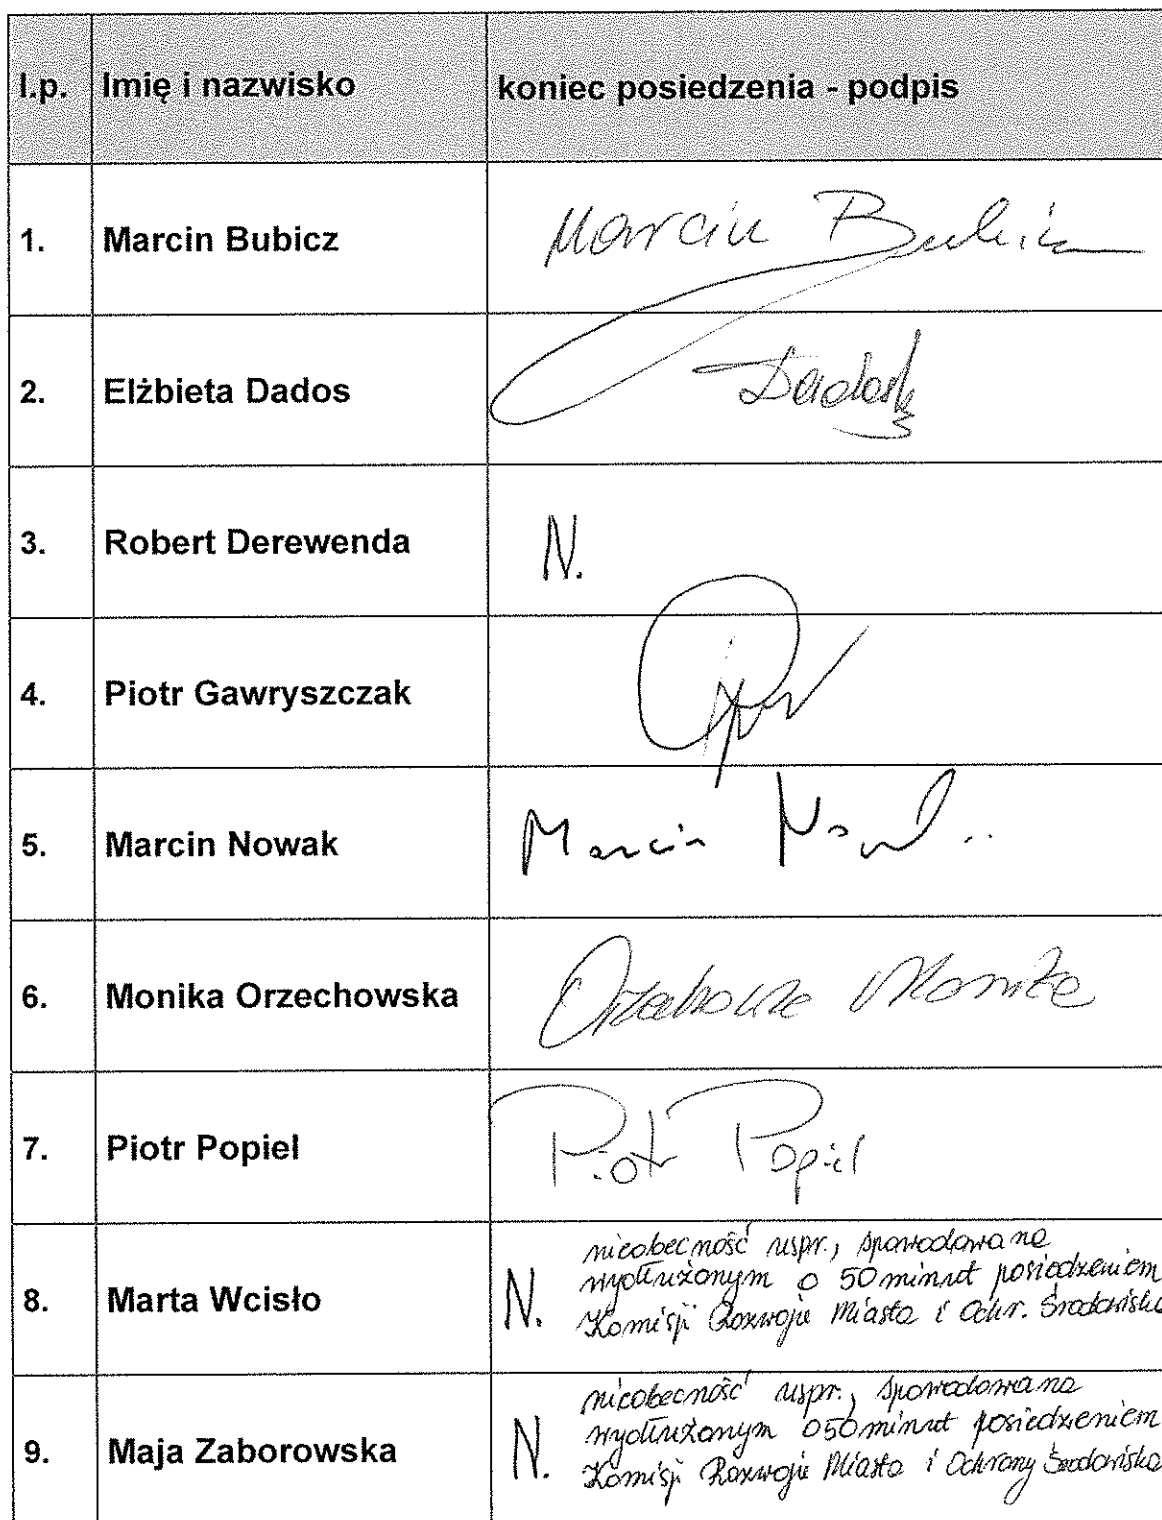 l.p. Imię i nazwisko koniec posiedzenia - podpis
1. Marcin Bubicz Marcin Bubicz
2. Elżbieta Dados Dados
3. Robert Derewenda N.
4. Piotr Gawryszczak
5. Marcin Nowak Marcin Nowak
6. Monika Orzechowska Orzechowska Monika
7. Piotr Popiel Piotr Popiel
nieobecność uspr., spowodowana
wydłużonym o 50 minut posiedzeniem
8. Marta Wcisło N. Komisji Rozwoju Miasta i Ochr. Środowiska
nieobecność uspr., spowodowana
wydłużonym o 50 minut posiedzeniem
9. Maja Zaborowska N. Komisji Rozwoju Miasta i Ochrony Środowiska